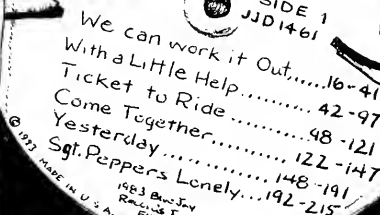 SIDE 1
JJD1461
We can work it Out......16-41
With a Little Help..........42-97
Ticket to Ride...........98-121
Come Together..........122-147
Yesterday..............148-191
Sgt. Peppers Lonely...192-215
© 1983 MADE IN U.S.A.
1983 Bam Jay